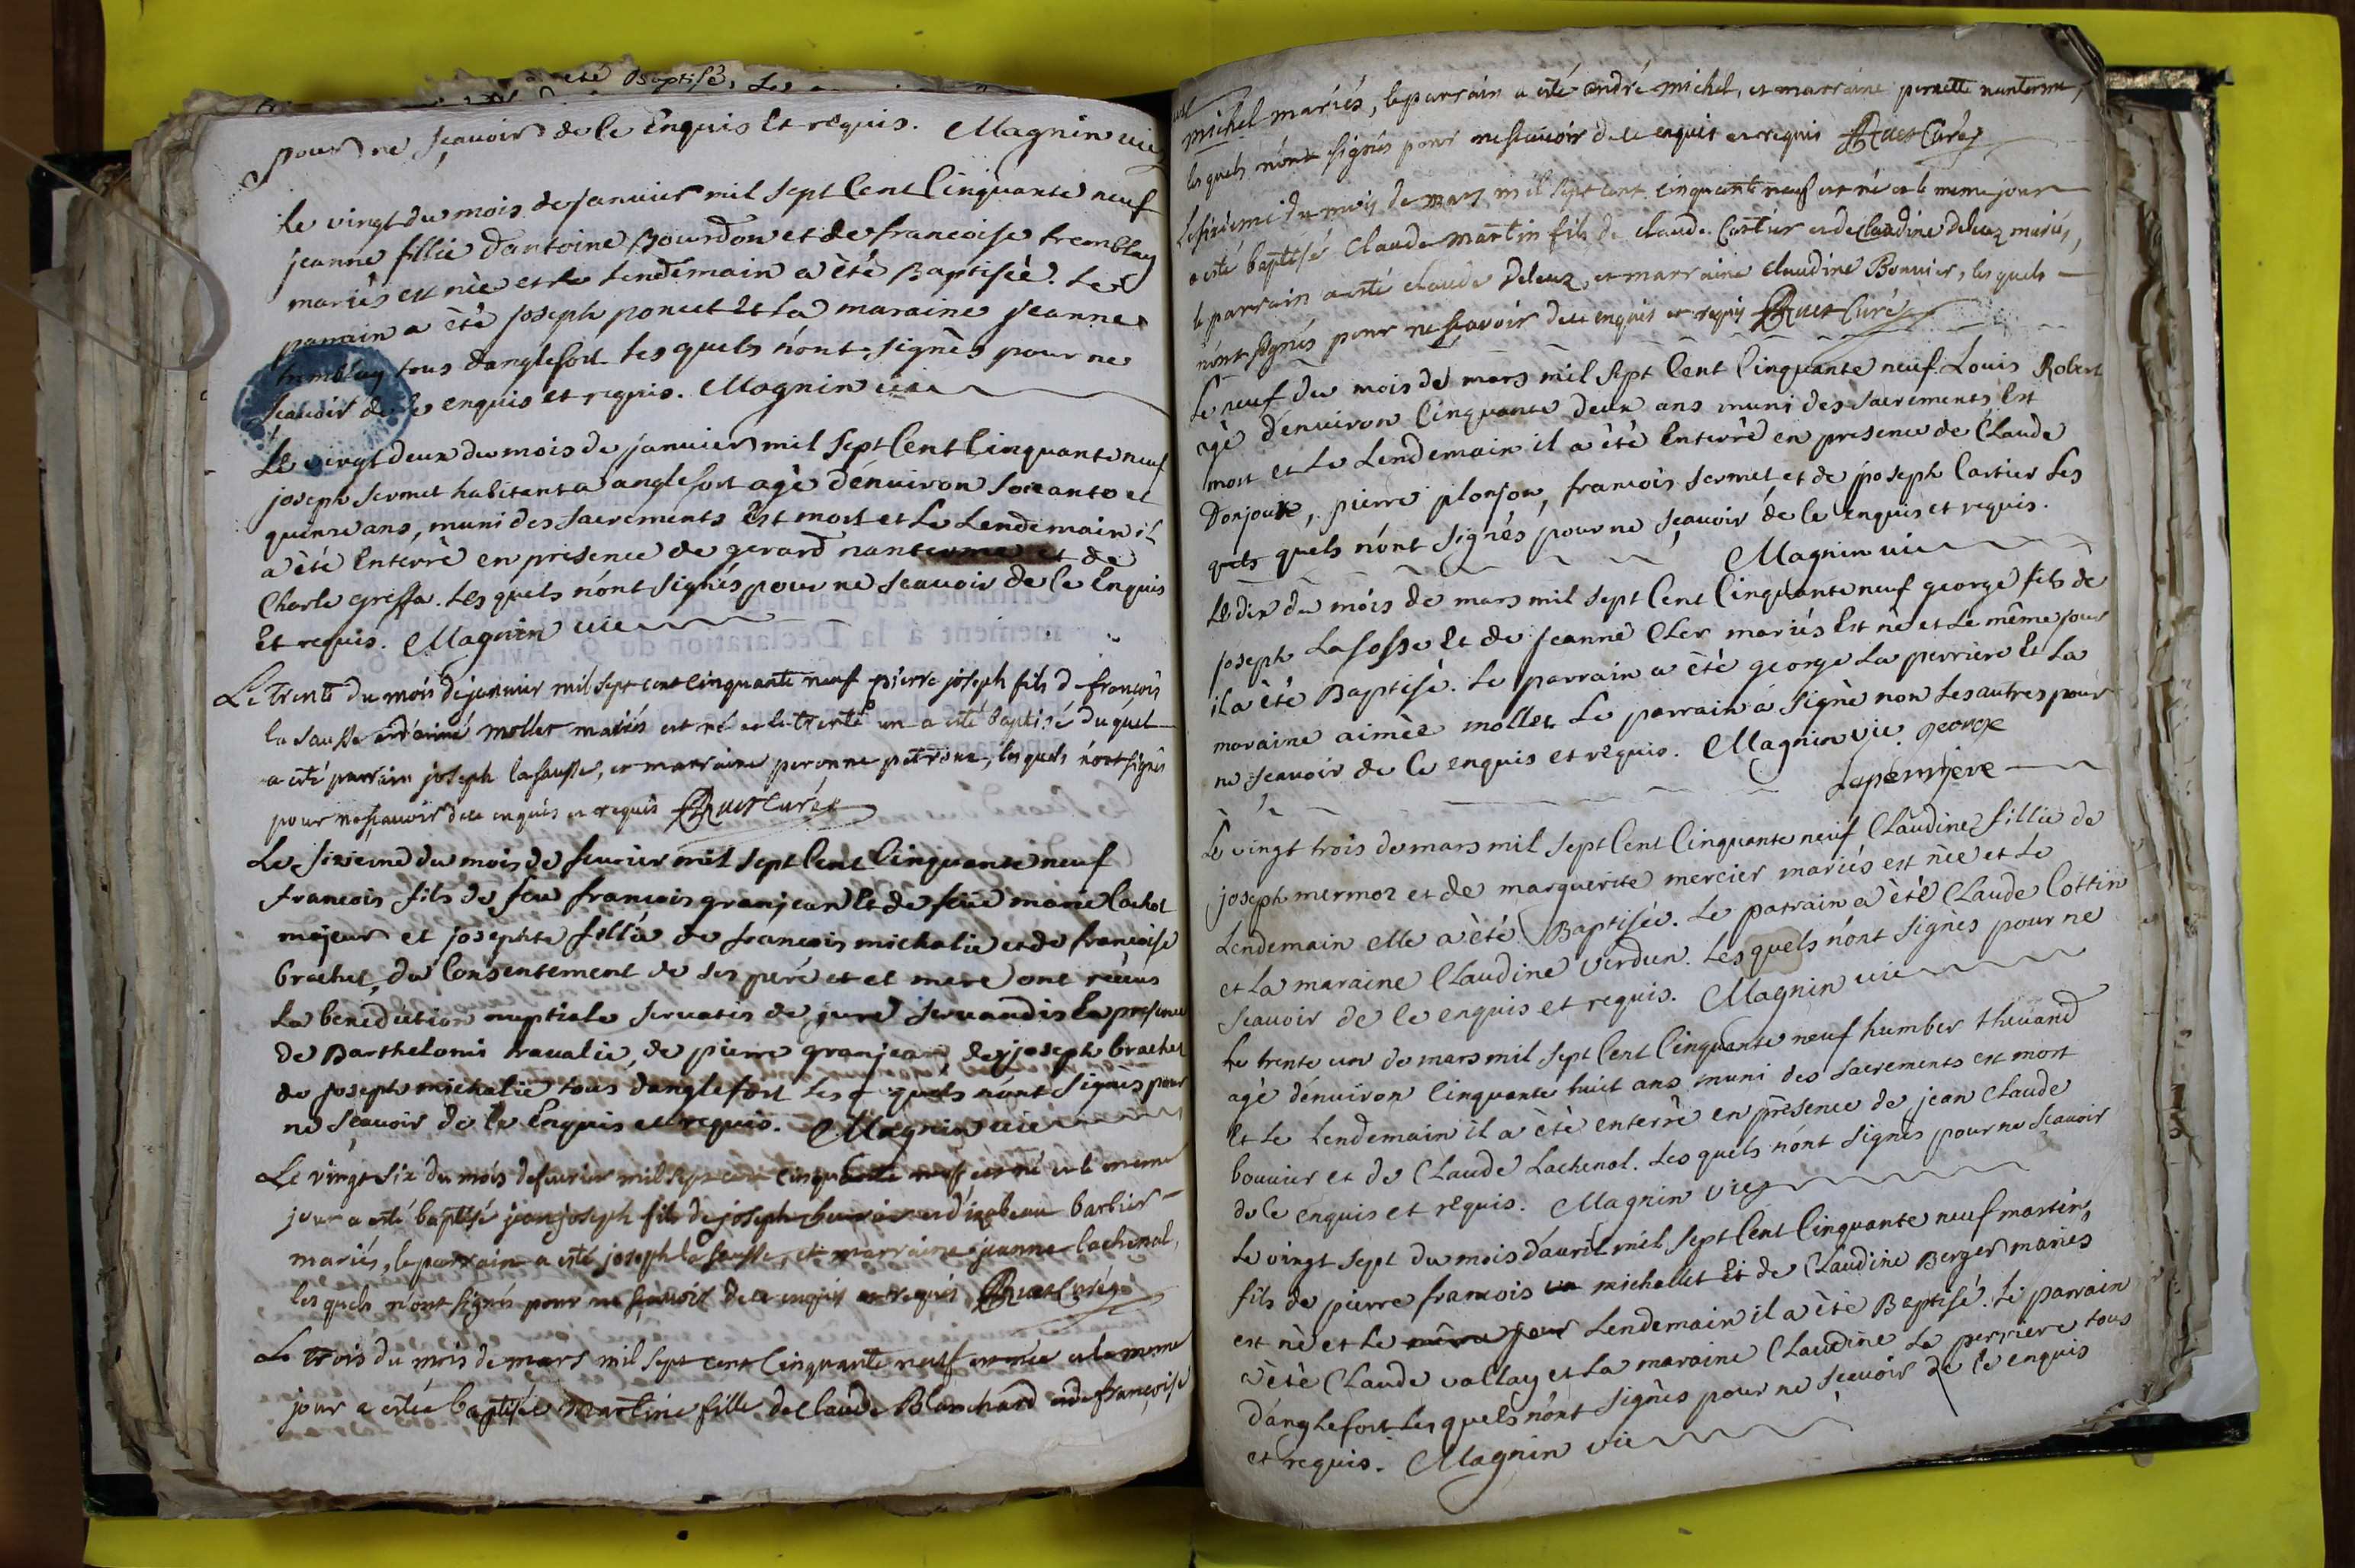 été Baptisé, Les
pour ne sçavoir de ce enquis Et requis. Magnin vic
Le vingt du mois de janvier mil sept Cent Cinquante neuf
jeanne fillie d'antoine Bourdon et de francoise tremblay
mariés est née et le Lendemain a èté Baptisée. Le
parrain a èté joseph poncet Et La maraine jeanne
tremblay tous danglefort Lesquels n'ont signès pour ne
sçavoir de ce enquis et requis. Magnin vic
Le vingt deux du mois de janvier mil sept Cent Cinquante neuf
joseph sermet habitant a anglefort agè d'énuiron soixante et
quinze ans, muni des sacrements Est mort et Le Lendemain il
a èté Enterrè en presence de gerard nanterme et de
Charle greffa. Les quels n'ont signés pour ne sçavoir de ce Enquis
Et requis. Magnin vic
Le Trente du mois de januier mil sept cent cinquante neuf pierre joseph fils d françois
la sausse et d'aimé mollet mariés est né et le trente un a esté baptisé du quel
a esté parrain joseph lasausse, et marraine peronne petrone, les quels n'ont signés
pour ne sçauoir de ce enquis et requis Curé
Le sixieme du mois de feurier mil sept Cent Cinquante neuf
francois fils de feu françois granjean Et de feüe marie Lachat
majeur et josephte fillie de francois michalie et de francoise
brachet, du Consentement de ses peré et et mere ont réçus
La benediction nuptiale servatis de jure servandis En presence
de Barthelomi ravalie, de pierre granjean, de joseph brachet
de joseph michalie tous danglefort Les quels n'ont signés pour
ne sçavoir de ce Enquis et requis. Magnin vic
Le vingt six du mois de feurier mil sept cent cinquante neuf est né et le meme
jour a esté baptisé jean joseph fils de joseph et d'izabeau barbier
mariés, le parrain a esté joseph la sausse, et marraine jeanne lachenal,
les quels n'ont signés pour ne sçavoir de ce enquis et requis Curé
Le trois du mois de mars mil sept cent cinquante neuf est née et le meme
jour a estée baptisée Martine fille de Claude Blanchard et de françoise
michel mariés, le parrain a esté andré michel, et marraine pernette nanterme,
les quels n'ont signés pour ne sçauoir de ce enquis et requis Curé
Le sixieme du mois de mars mil sept cent cinquante neuf est né et le meme jour
a esté baptisé Claude Martin fils de claude Cartier et de Claudine deleaz mariés,
le parrain a esté claude deleaz, et marraine claudine Bonnier, les quels
n'ont signés pour ne sçavoir de ce enquis et requis Curé
Le neuf du mois de mars mil sept Cent Cinquante neuf Louis Robert
agè d'énuiron Cinquante deux ans muni des sacrements Est
mort et Le Lendemain il a èté Enterrè en presence de Claude
Donjoux, pierre plonjon, francois sermet et de joseph Cartier Les
quels quels n'ont signés pour ne sçavoir de ce enquis et requis.
Magnin vic
Le dix du mois de mars mil sept Cent Cinquante neuf george fils de
joseph La sosse Et de jeanne Cler mariés Est nè et Le même jour
il a èté Baptisè. Le parrain a èté george La perriere Et La
maraine aimée mollet Le parrain a signè non Les autres pour
ne sçavoir de ce enquis et requis. Magnin vic george
Laperriere
Le vingt trois de mars mil sept Cent Cinquante neuf Claudine fillie de
joseph mermoz et de marguerite mercier mariés est née et Le
Lendemain elle a èté Baptisée. Le parrain a èté Claude Cottin
et La maraine Claudine Verdun. Lesquels n'ont signès pour ne
sçavoir de ce enquis et requis. Magnin vic
Le trente un de mars mil sept Cent Cinquante neuf humber thévand
agè d'énuiron Cinquante huit ans muni des sacrements est mort
Et Le Lendemain il a èté enterrè en prèsence de jean Claude
bouvier et de Claude Lachenal. Les quels n'ont signés pour ne sçavoir
de ce enquis et requis. Magnin vic
Le vingt sept du mois d'auril mil sept Cent Cinquante neuf martin,
fils de pierre francois michallet Et de Claudine Berger mariés
est nè et Le même jour Lendemain il a èté Baptisé. Le parrain
a èté Claude vallay et La maraine Claudine La perriere tous
d'anglefort Lesquels n'ont signès pour ne sçavoir de ce enquis
et requis. Magnin vic